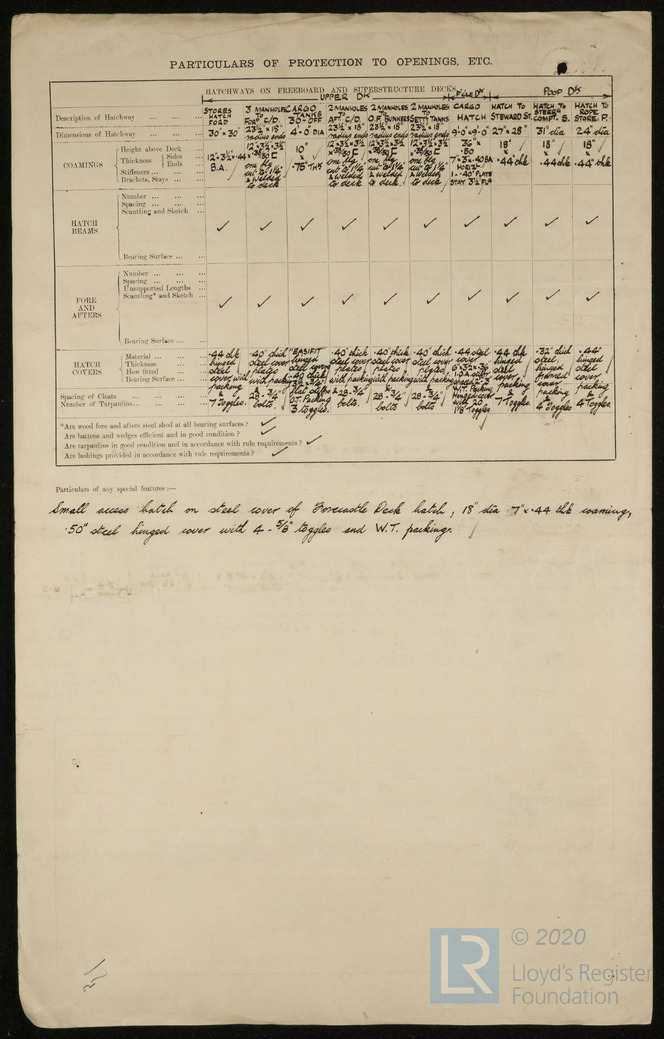 PARTICULARS OF PROTECTION TO OPENINGS, ETC.
HATCHWAYS ON FREEBOARD AND SUPERSTRUCTURE DECKS
UPPER DK
POOP DK
Description of Hatchway ... ...
STORES HATCH FORD
3 MANHOLES TO FORD C/D.
CARGO TANKS 30-OFF
2 MANHOLES TO AFT. C/D.
2 MANHOLES TO O.F. BUNKERS
2 MANHOLES TO SETTG TANKS
CARGO HATCH
HATCH TO STEWARD ST.
HATCH TO STEERG COMPT. S.
HATCH TO ROPE STORE. P.
Dimensions of Hatchway ... ...
30" × 30"
23½" × 18" radius ends
4'-0" DIA
23½" × 18" radius ends
23½" × 18" radius ends
23½" × 18" radius ends
9'-0" × 9'-0"
27" × 28"
31" dia
24" dia
COAMINGS
Height above Deck ...
Thickness
Sides ...
Ends ...
Stiffeners ... ...
Brackets, Stays ... ...
12" × 3½" × .44 B.A.
one leg cut to 1¼" & welded to deck
10" × .75" THK
one leg cut to 1¼" & welded to deck
one leg cut to 1¼" & welded to deck
one leg cut to 1¼" & welded to deck
36" × .80
7" × 3" × .40 BA HORIZL
1 - .40" PLATE STAY 3½" FLG
18" × .44 thk
18" × .44 thk
18" × .44" thk
HATCH BEAMS
Number ... ... ...
Spacing ... ... ...
Scantling and Sketch ...
✓ ✓ ✓ ✓ ✓ ✓ ✓ ✓ ✓ ✓
Bearing Surface ... ...
FORE AND AFTERS
Number ... ... ...
Spacing ... ... ...
Unsupported Lengths ...
Scantling* and Sketch ...
✓ ✓ ✓ ✓ ✓ ✓ ✓ ✓ ✓ ✓
Bearing Surface ... ...
HATCH COVERS
Material ... ... ...
Thickness ... ...
How fitted ... ...
Bearing Surface ... ...
Spacing of Cleats ... ... ... ...
Number of Tarpaulins ... ... ... ...
.44 thk hinged steel cover with packing & 7 Toggles.
.40" thick steel cover plates with packing & 28 - ¾" bolts.
"EASIFIT" hinged steel cover
3 toggles.
.40" thick steel cover plates with packing & 28 - ¾" bolts.
.40" thick steel cover plates with packing & 28 - ¾" bolts.
.40" thick steel cover plates with packing & 28 - ¾" bolts
.44 steel cover
W.T. Packing Hinged cover with 20 1⅛" Toggles
.44 thk hinged steel cover packing & 7 Toggles
.32" thick steel hinged cover packing & 4 Toggles
.44" hinged steel cover packing & 4 Toggles
*Are wood fore and afters steel shod at all bearing surfaces? ✓
Are battens and wedges efficient and in good condition? ✓
Are tarpaulins in good condition and in accordance with rule requirements? ✓
Are lashings provided in accordance with rule requirements? ✓
Particulars of any special features:—
Small access hatch on steel cover of Forecastle Deck hatch, 18" dia 7" × .44 thk coaming,
.50" steel hinged cover with 4 - ⅝" toggles and W.T. packing.
LR
© 2020
Lloyd's Register
Foundation